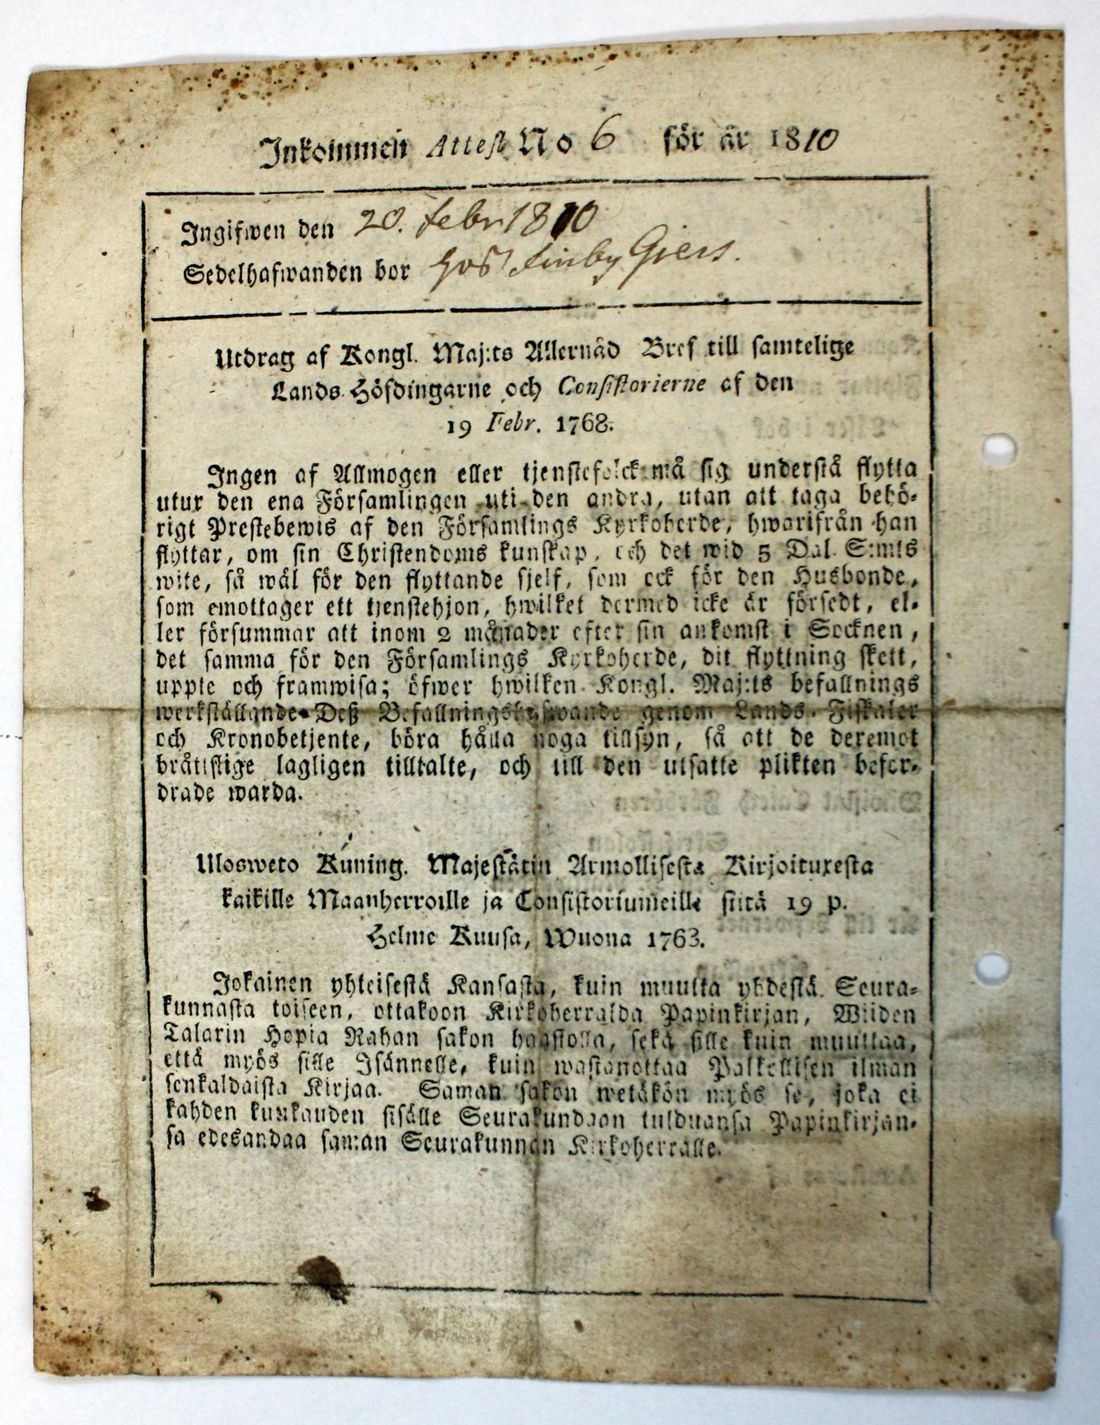 Inkommen Attest No 6 för år 1810
Ingifwen den 20. Febr 1810
Sedelhafwanden bor hos Finby Giers.
Utdrag af Kongl. Maj:ts Allernåd Bref till samtelige
Lands-Höfdingarne och Consistorierne af den
19 Febr. 1768.
Ingen af Allmogen eller tjenstefolck må sig understå flytta
utur den ena Församlingen uti den andra, utan att taga behö-
rigt Prestebewis af den Församlings Kyrkoherde, hwarifrån han
flyttar, om sin Christendoms kunskap, och det wid 5 Dal. S:mts
wite, så wäl för den flyttande sjelf, som ock för den Husbonde,
som emottager ett tjenstehjon, hwilket dermed icke är försedt, el-
ler försummar att inom 2 månader efter sin ankomst i Socknen,
det samma för den Församlings Kyrkoherde, dit flyttning skett,
uppte och framwisa; öfwer hwilken Kongl. Maj:ts befallnings
werkställande Deß Befallningshafwande genom Lands-Fiskaler
och Kronobetjente, böra hålla noga tillsyn, så att de deremot
bråttslige lagligen tilltalte, och till den utsatte plikten befor-
drade warda.
Ulosweto Kuning. Majestätin Armollisesta Kirjoituxesta
kaikille Maanherroille ja Consistoriumeille siitä 19 p.
Helme Kuusa, Wuona 1763.
Jokainen yhteisestä Kansasta, kuin muutta yhdestä Seura-
kunnasta toiseen, ottakoon Kirkoherralda Papinkirjan, Wiiden
Talarin Hopia Rahan sakon haastolla, sekä sille kuin muuttaa,
että myös sille Isännelle, kuin wastanottaa Palkellisen ilman
senkaldaista Kirjaa. Saman sakon wetäkön myös se, joka ei
kahden kuukauden sisälle Seurakundaan tulduansa Papinkirjan-
sa edesandaa saman Seurakunnan Kirkoherralle.